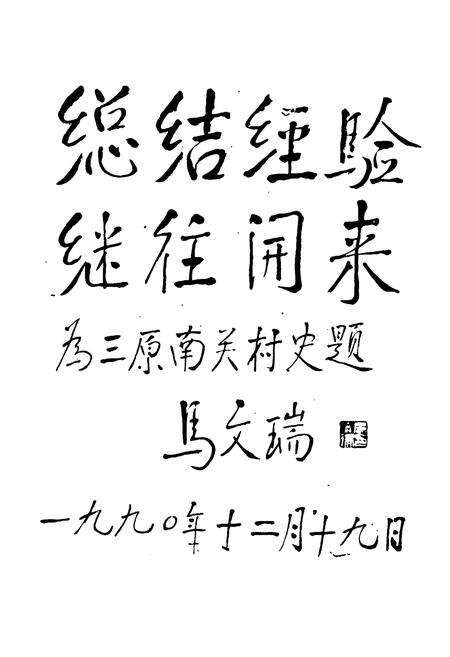 總结經验
继往开来
为三原南关村史题
馬文瑞
一九九〇年十二月十九日